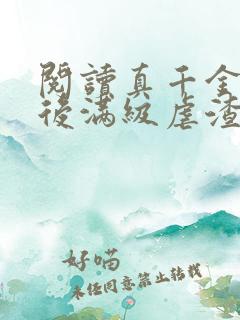 閱讀真千金
後滿級虐渣
好喵
未任同意禁止转载